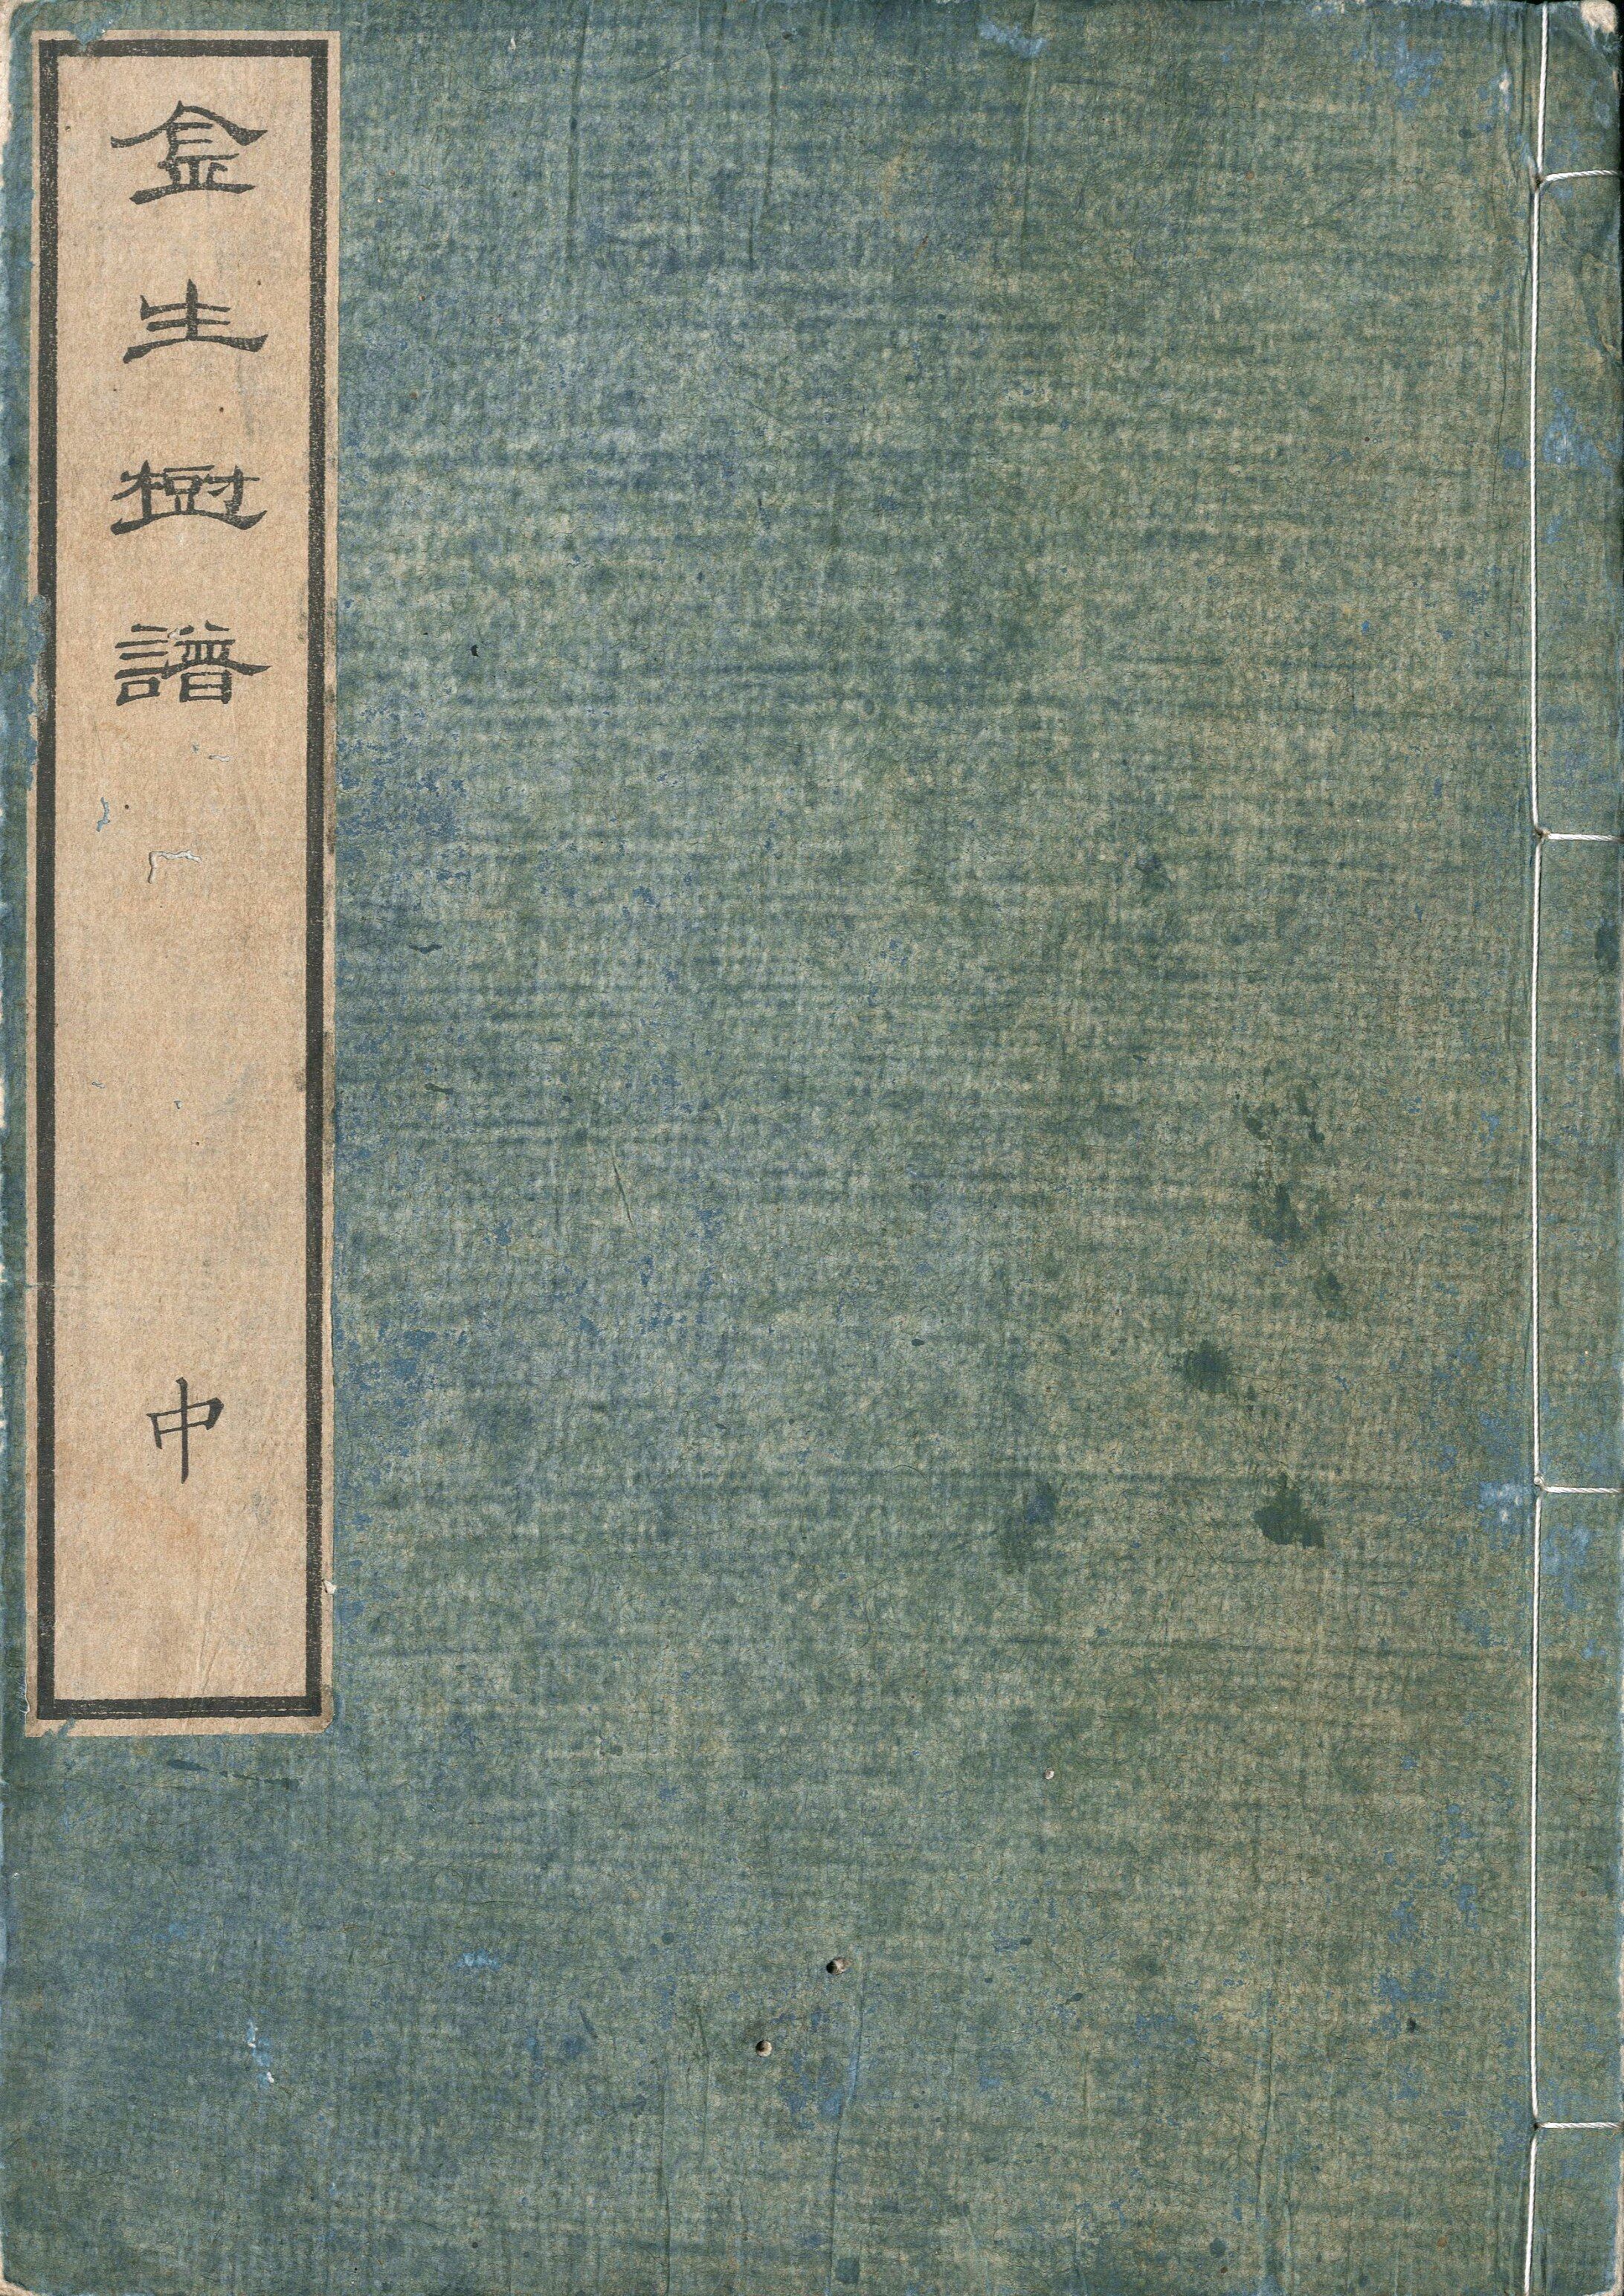 金生樹譜
中